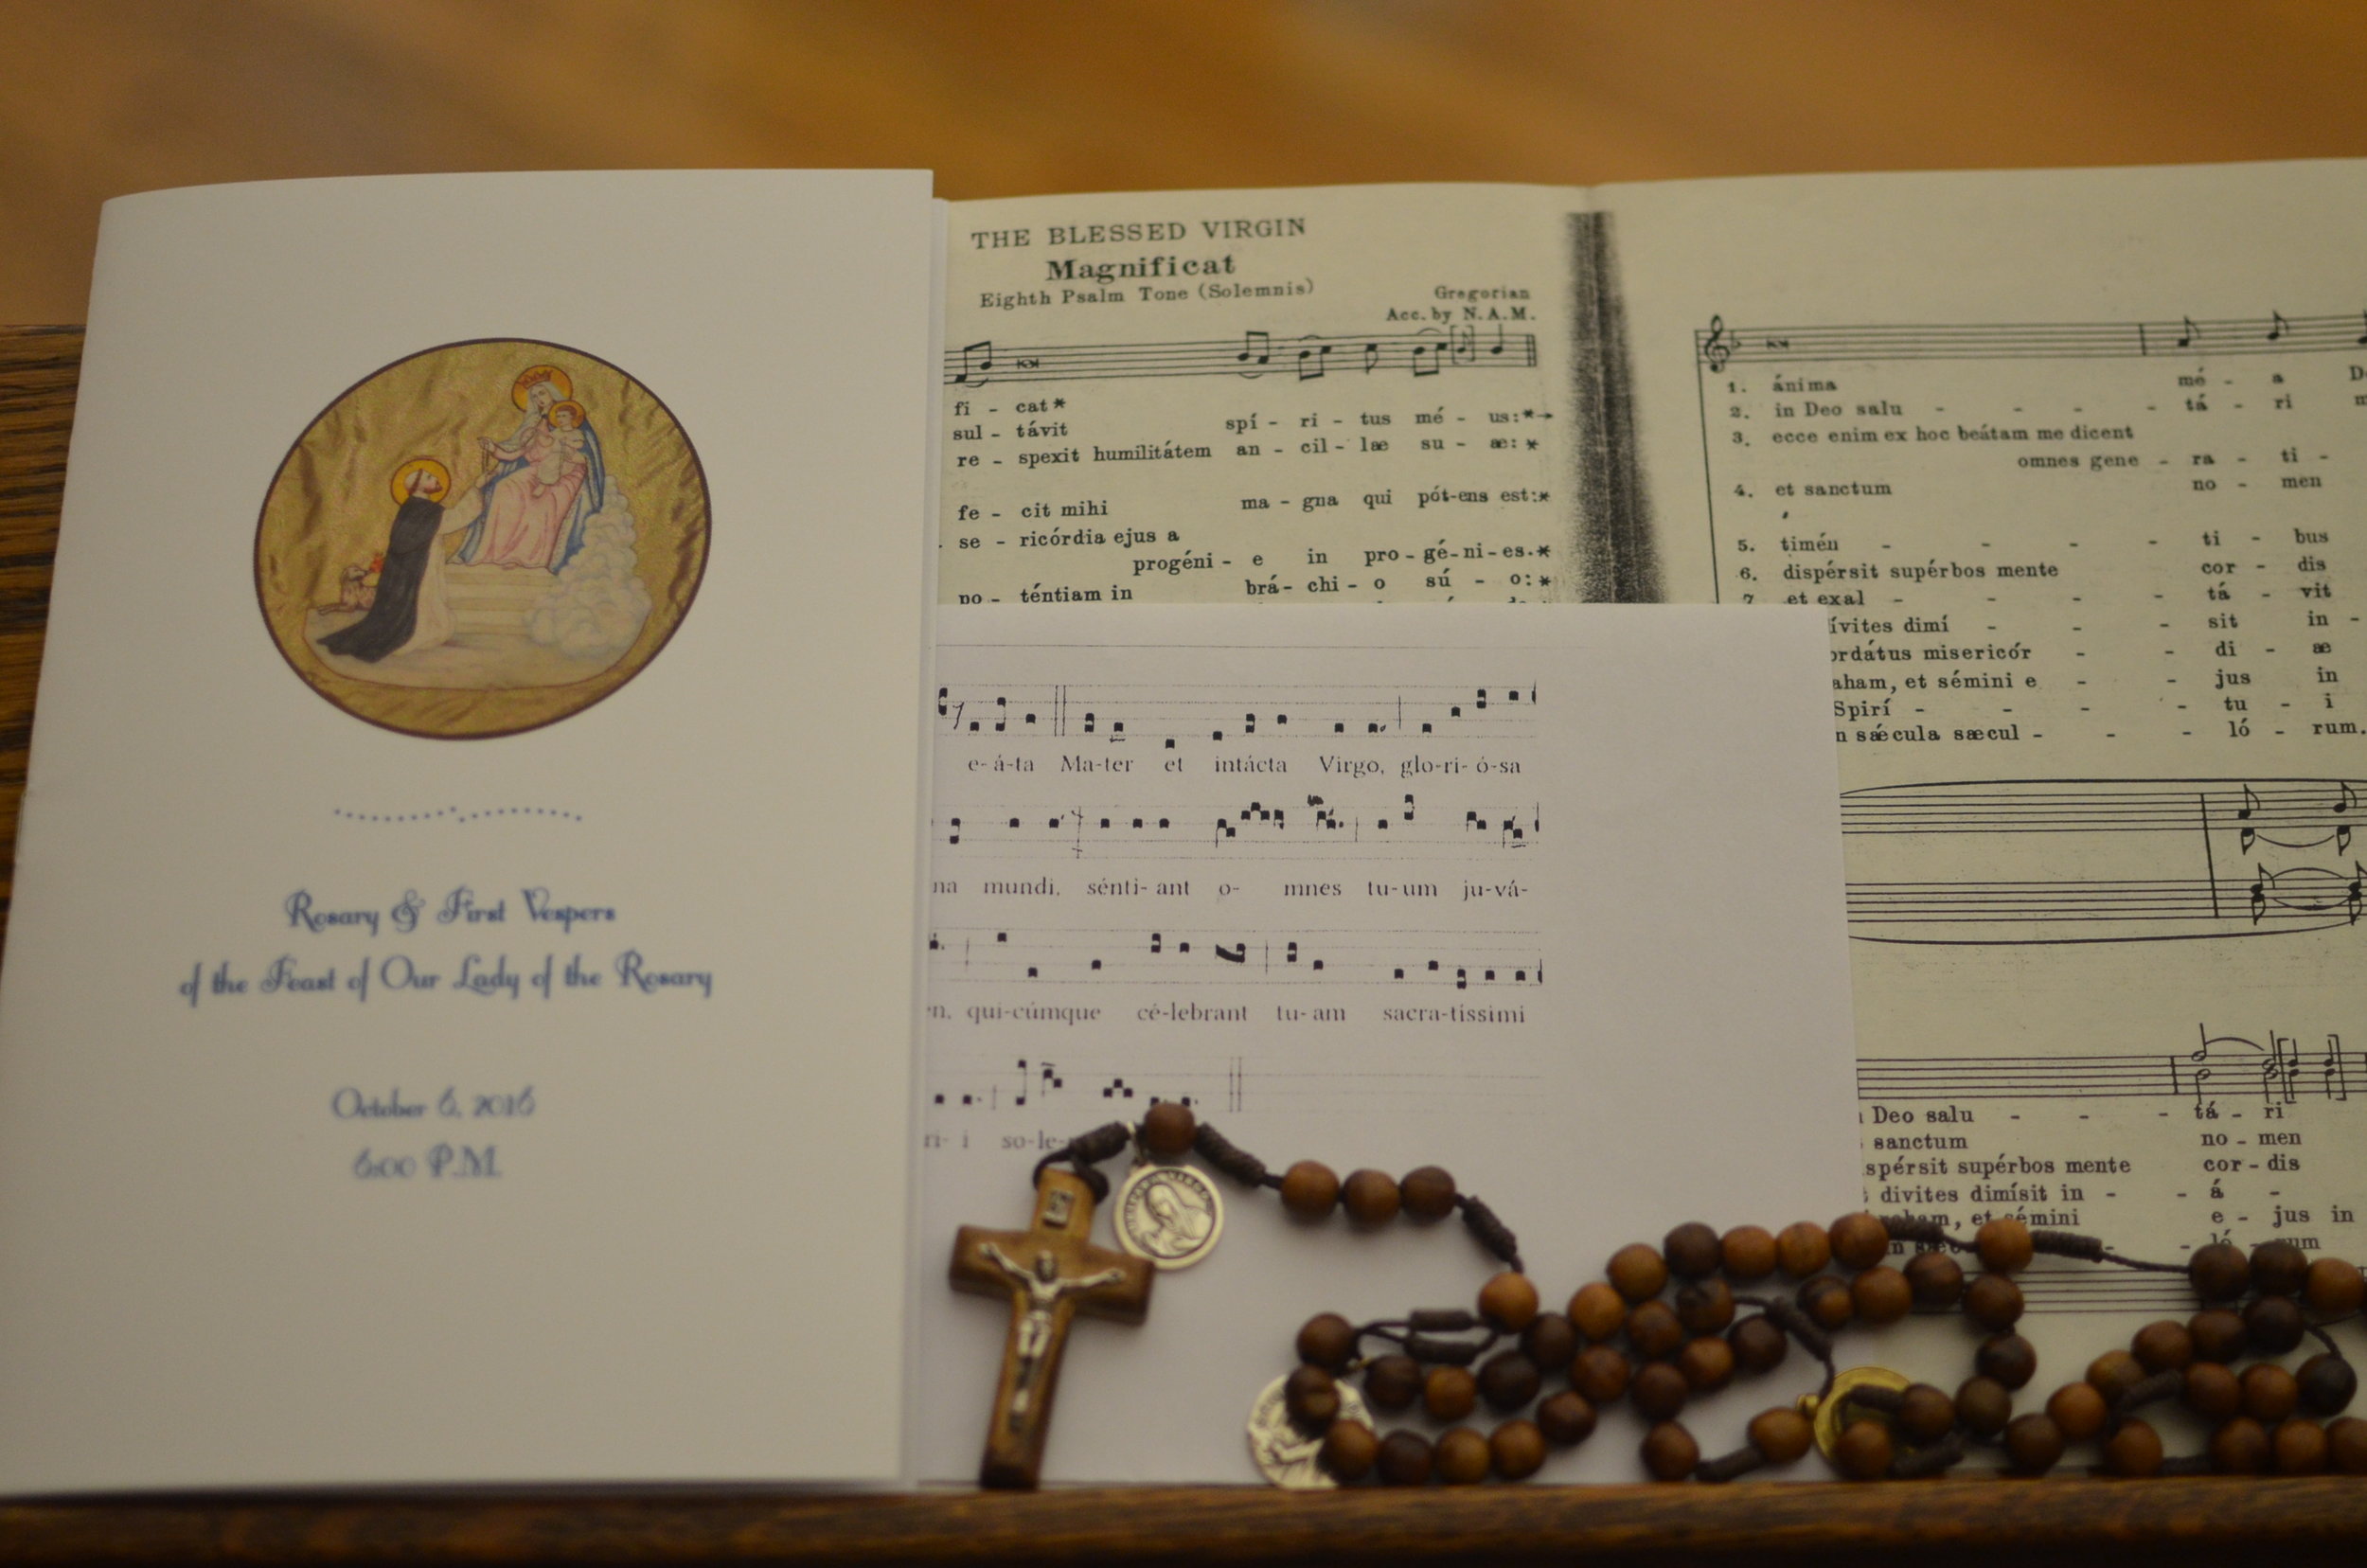 Rosary & First Vespers
of the Feast of Our Lady of the Rosary
October 6, 2016
6:00 P.M.
THE BLESSED VIRGIN
Magnificat
Eighth Psalm Tone (Solemnis)
Gregorian
Acc. by N.A.M.
fi - cat*
sul - távit spí - ri - tus mé - us:*→
re - spexit humilitátem an - cil - læ su - æ: *
fe - cit mihi ma - gna qui pót-ens est:*
se - ricórdia ejus a
progéni - e in pro - gé-ni-es.*
po - téntiam in brá - chi - o sú - o: *
e-á-ta Ma-ter et intácta Virgo, glo-ri-ó-sa
na mundi, sénti-ant o- mnes tu-um ju-vá-
n, qui-cúmque cé-lebrant tu-am sacra-tíssimi
ri-i so-le-
1. ánima mé - a D
2. in Deo salu - - - - tá - ri m
3. ecce enim ex hoc beátam me dicent
omnes gene - ra - ti -
4. et sanctum no - men
5. timén - - - - ti - bus
6. dispérsit supérbos mente cor - dis
7 et exal - - - - tá - vit
ívites dimí - - - sit in -
ordátus misericór - - di - æ
aham, et sémini e - - jus in
Spirí - - - - tu - i
n sǽcula sæcul - - - ló - rum.
Deo salu - - - tá - ri
sanctum no - men
spérsit supérbos mente cor - dis
divites dimísit in - - á -
aham, et sémini e - jus in